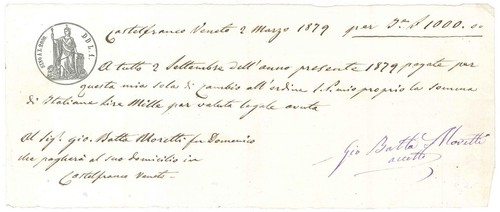 Castelfranco Veneto 2 Marzo 1879 per £ 1000.00
A tutto 2 Settembre dell'anno presente 1879 pagate per
questa mia sola di Cambio all'ordine S.P. mio proprio la somma
di Italiane Lire Mille per valuta legale avuta
Al Sig. Gio. Batta Moretti fu Domenico
che pagherà al suo domicilio in
Castelfranco Veneto
Gio Batta Moretti
accetto